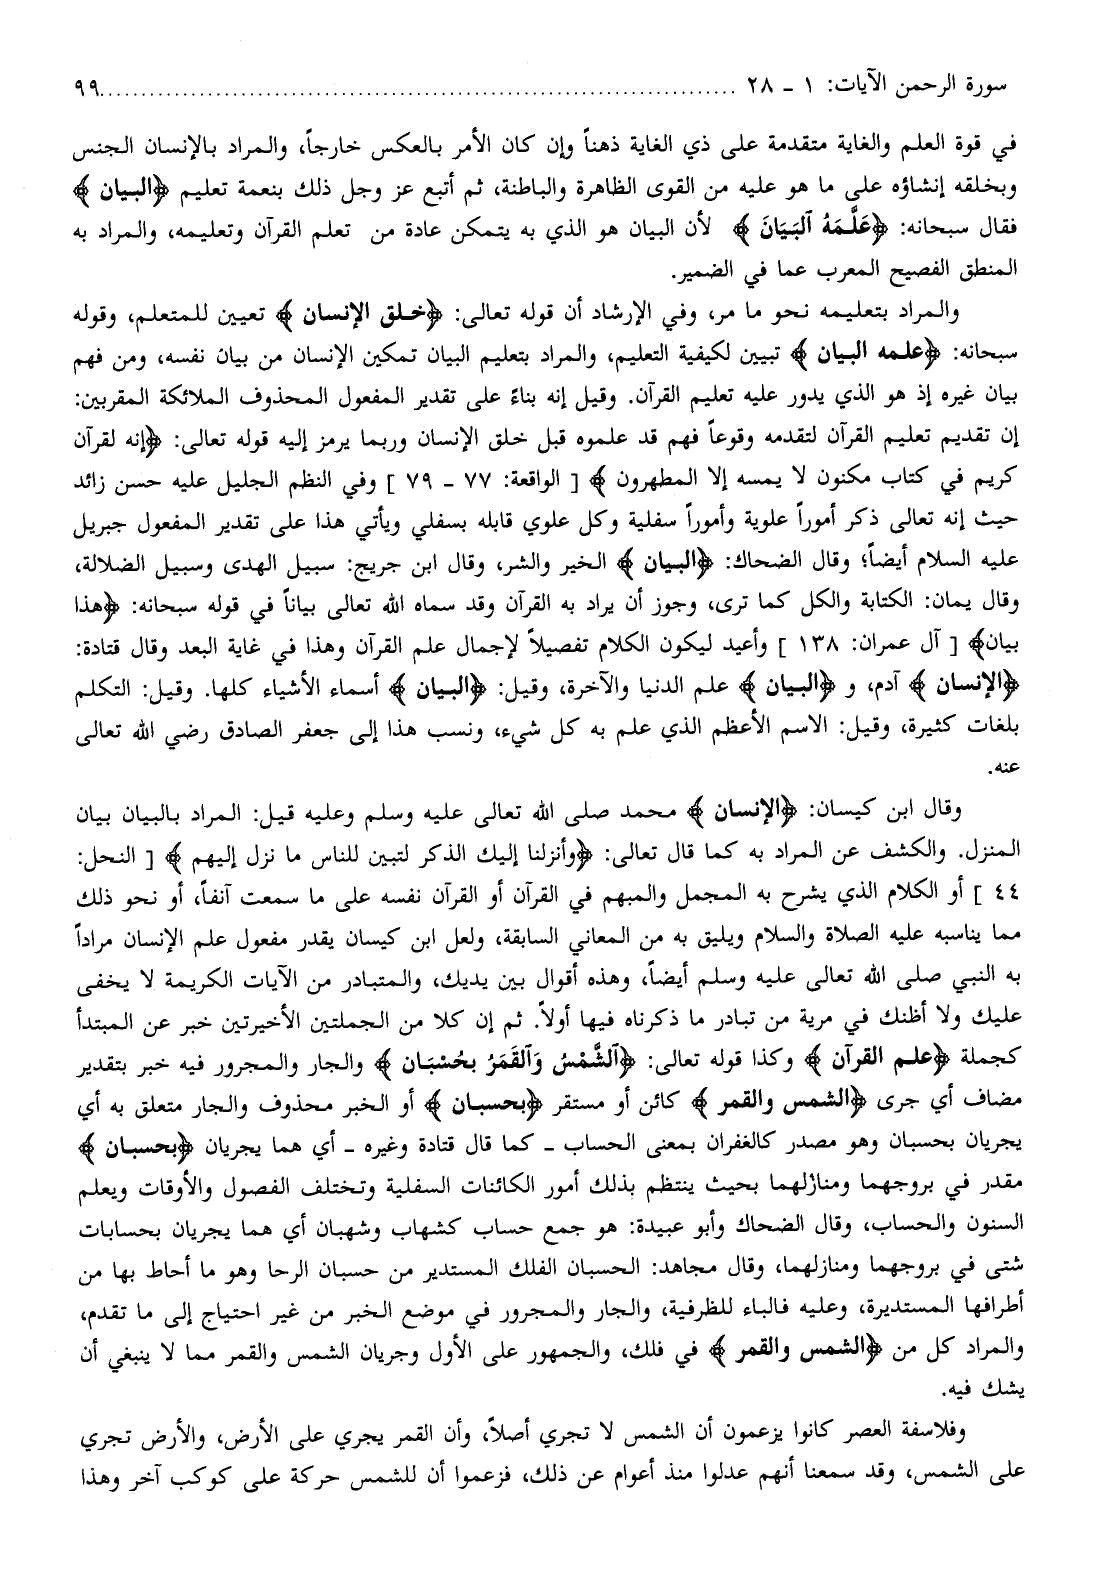 سورة الرحمن الآيات: ١ ـ ٢٨ ........................................................................... ٩٩
في قوة العلم والغاية متقدمة على ذي الغاية ذهناً وإن كان الأمر بالعكس خارجاً، والمراد بالإنسان الجنس
وبخلقه إنشاؤه على ما هو عليه من القوى الظاهرة والباطنة، ثم أتبع عز وجل ذلك بنعمة تعليم ﴿البيان﴾
فقال سبحانه: ﴿عَلَّمَهُ ٱلبَيَانَ﴾ لأن البيان هو الذي به يتمكن عادة من تعلم القرآن وتعليمه، والمراد به
المنطق الفصيح المعرب عما في الضمير.
والمراد بتعليمه نحو ما مر، وفي الإرشاد أن قوله تعالى: ﴿خلق الإنسان﴾ تعيين للمتعلم، وقوله
سبحانه: ﴿علمه البيان﴾ تبيين لكيفية التعليم، والمراد بتعليم البيان تمكين الإنسان من بيان نفسه، ومن فهم
بيان غيره إذ هو الذي يدور عليه تعليم القرآن. وقيل إنه بناءً على تقدير المفعول المحذوف الملائكة المقربين:
إن تقديم تعليم القرآن لتقدمه وقوعاً فهم قد علموه قبل خلق الإنسان وربما يرمز إليه قوله تعالى: ﴿إنه لقرآن
كريم في كتاب مكنون لا يمسه إلا المطهرون﴾ [ الواقعة: ٧٧ ـ ٧٩ ] وفي النظم الجليل عليه حسن زائد
حيث إنه تعالى ذكر أموراً علوية وأموراً سفلية وكل علوي قابله بسفلي ويأتي هذا على تقدير المفعول جبريل
عليه السلام أيضاً؛ وقال الضحاك: ﴿البيان﴾ الخير والشر، وقال ابن جريج: سبيل الهدى وسبيل الضلالة،
وقال يمان: الكتابة والكل كما ترى، وجوز أن يراد به القرآن وقد سماه الله تعالى بياناً في قوله سبحانه: ﴿هذا
بيان﴾ [ آل عمران: ١٣٨ ] وأعيد ليكون الكلام تفصيلاً لإجمال علم القرآن وهذا في غاية البعد وقال قتادة:
﴿الإنسان﴾ آدم، و ﴿البيان﴾ علم الدنيا والآخرة، وقيل: ﴿البيان﴾ أسماء الأشياء كلها. وقيل: التكلم
بلغات كثيرة، وقيل: الاسم الأعظم الذي علم به كل شيء، ونسب هذا إلى جعفر الصادق رضي الله تعالى
عنه.
وقال ابن كيسان: ﴿الإنسان﴾ محمد صلى الله تعالى عليه وسلم وعليه قيل: المراد بالبيان بيان
المنزل. والكشف عن المراد به كما قال تعالى: ﴿وأنزلنا إليك الذكر لتبين للناس ما نزل إليهم﴾ [ النحل:
٤٤ ] أو الكلام الذي يشرح به المجمل والمبهم في القرآن أو القرآن نفسه على ما سمعت آنفاً، أو نحو ذلك
مما يناسبه عليه الصلاة والسلام ويليق به من المعاني السابقة، ولعل ابن كيسان يقدر مفعول علم الإنسان مراداً
به النبي صلى الله تعالى عليه وسلم أيضاً، وهذه أقوال بين يديك، والمتبادر من الآيات الكريمة لا يخفى
عليك ولا أظنك في مرية من تبادر ما ذكرناه فيها أولاً. ثم إن كلا من الجملتين الأخيرتين خبر عن المبتدأ
كجملة ﴿علم القرآن﴾ وكذا قوله تعالى: ﴿ٱلشَّمْسُ وَٱلقَمَرُ بِحُسْبَان﴾ والجار والمجرور فيه خبر بتقدير
مضاف أي جرى ﴿الشمس والقمر﴾ كائن أو مستقر ﴿بحسبان﴾ أو الخبر محذوف والجار متعلق به أي
يجريان بحسبان وهو مصدر كالغفران بمعنى الحساب ـ كما قال قتادة وغيره ـ أي هما يجريان ﴿بحسبان﴾
مقدر في بروجهما ومنازلهما بحيث ينتظم بذلك أمور الكائنات السفلية وتختلف الفصول والأوقات ويعلم
السنون والحساب، وقال الضحاك وأبو عبيدة: هو جمع حساب كشهاب وشهبان أي هما يجريان بحسابات
شتى في بروجهما ومنازلهما، وقال مجاهد: الحسبان الفلك المستدير من حسبان الرحا وهو ما أحاط بها من
أطرافها المستديرة، وعليه فالباء للظرفية، والجار والمجرور في موضع الخبر من غير احتياج إلى ما تقدم،
والمراد كل من ﴿الشمس والقمر﴾ في فلك، والجمهور على الأول وجريان الشمس والقمر مما لا ينبغي أن
يشك فيه.
وفلاسفة العصر كانوا يزعمون أن الشمس لا تجري أصلاً، وأن القمر يجري على الأرض، والأرض تجري
على الشمس، وقد سمعنا أنهم عدلوا منذ أعوام عن ذلك، فزعموا أن للشمس حركة على كوكب آخر وهذا